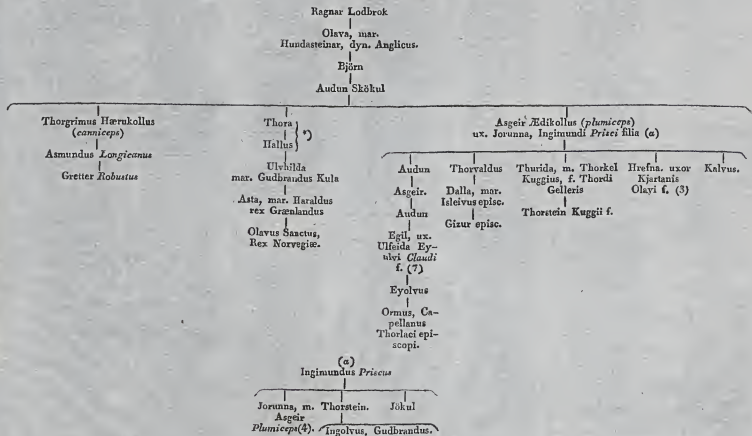 Ragnar Lodbrok
Olava, mar.
Hundasteinar, dyn. Anglicus.
Björn
Audun Skökul
Thorgrimus Hærukollus
(canniceps)
Asmundus Longicanus
Gretter Robustus
Thora
Hallus
*)
Ulvhilda
mar. Gudbrandus Kula
Asta, mar. Haraldus
rex Grænlandus
Olavus Sanctus,
Rex Norvegiæ.
Asgeir Ædikollus (plumiceps)
ux. Jorunna, Ingimundi Prisci filia (a)
Audun
Asgeir.
Audun
Egil, ux.
Ulfeida Ey-
ulvi Claudi
f. (7)
Eyolvus
Ormus, Ca-
pellanus
Thorlaci epi-
scopi.
Thorvaldus
Dalla, mar.
Isleivus episc.
Gizur episc.
Thurida, m. Thorkel
Kuggius, f. Thordi
Gelleris
Thorstein Kuggii f.
Hrefna. uxor
Kjartanis
Olavi f. (3)
Kalvus.
(a)
Ingimundus Priscus
Jorunna, m.
Asgeir
Plumiceps(4).
Thorstein.
Ingolvus, Gudbrandus.
Jökul